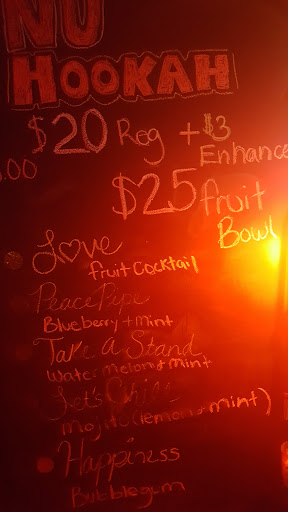 NU
HOOKAH
$20 Reg + $3
Enhance
.00
$25 fruit
Bowl
Love
fruit cocktail
Peace Pipe
Blueberry + mint
Take a Stand
Watermelon + mint
Let's Chill
Mojito (lemon + mint)
Happiness
Bubblegum